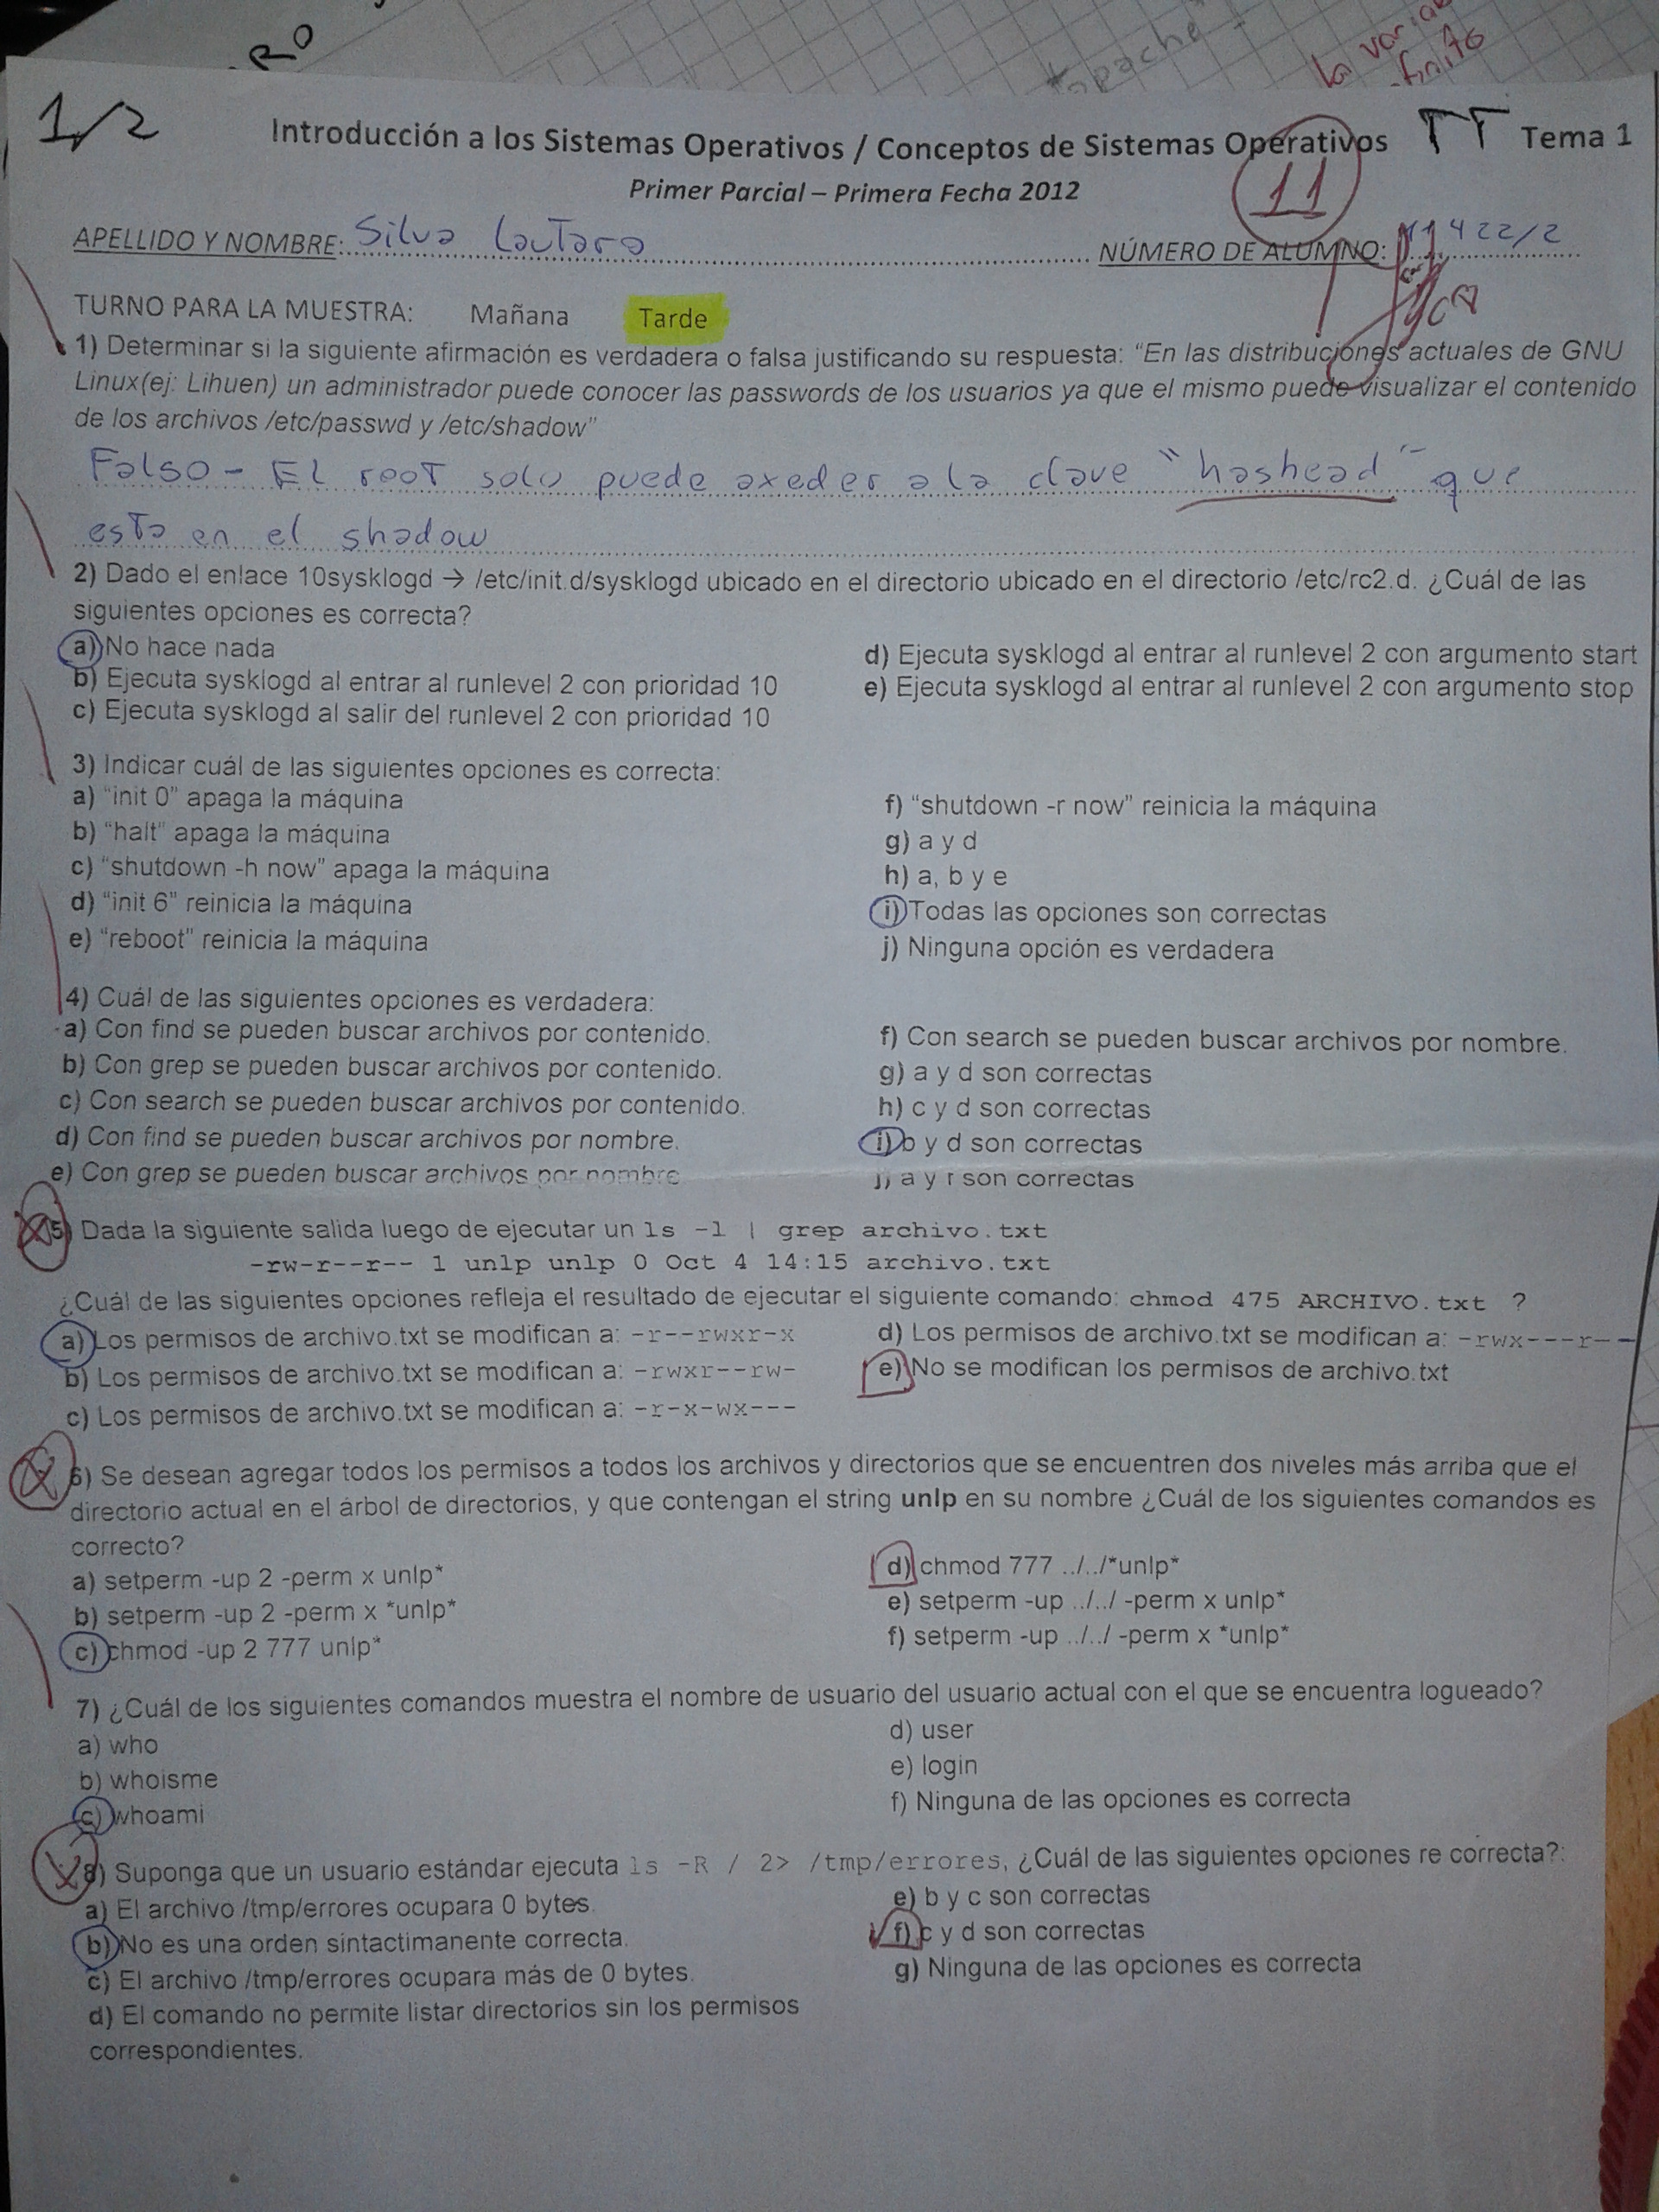 RO
apache
la variab
finito
1/2
Introducción a los Sistemas Operativos / Conceptos de Sistemas Operativos TT Tema 1
Primer Parcial – Primera Fecha 2012
11
APELLIDO Y NOMBRE: Silva Lautaro NÚMERO DE ALUMNO: 422/2
TURNO PARA LA MUESTRA: Mañana Tarde
1) Determinar si la siguiente afirmación es verdadera o falsa justificando su respuesta: “En las distribuciones actuales de GNU
Linux(ej: Lihuen) un administrador puede conocer las passwords de los usuarios ya que el mismo puede visualizar el contenido
de los archivos /etc/passwd y /etc/shadow”
Falso - El root solo puede axeder a la clave "hashead" que
esta en el shadow
2) Dado el enlace 10sysklogd → /etc/init.d/sysklogd ubicado en el directorio ubicado en el directorio /etc/rc2.d. ¿Cuál de las
siguientes opciones es correcta?
a) No hace nada
b) Ejecuta sysklogd al entrar al runlevel 2 con prioridad 10
c) Ejecuta sysklogd al salir del runlevel 2 con prioridad 10
d) Ejecuta sysklogd al entrar al runlevel 2 con argumento start
e) Ejecuta sysklogd al entrar al runlevel 2 con argumento stop
3) Indicar cuál de las siguientes opciones es correcta:
a) “init 0” apaga la máquina
b) “halt” apaga la máquina
c) “shutdown -h now” apaga la máquina
d) “init 6” reinicia la máquina
e) “reboot” reinicia la máquina
f) “shutdown -r now” reinicia la máquina
g) a y d
h) a, b y e
i) Todas las opciones son correctas
j) Ninguna opción es verdadera
4) Cuál de las siguientes opciones es verdadera:
a) Con find se pueden buscar archivos por contenido.
b) Con grep se pueden buscar archivos por contenido.
c) Con search se pueden buscar archivos por contenido.
d) Con find se pueden buscar archivos por nombre.
e) Con grep se pueden buscar archivos por nombre
f) Con search se pueden buscar archivos por nombre.
g) a y d son correctas
h) c y d son correctas
i) b y d son correctas
j) a y f son correctas
5) Dada la siguiente salida luego de ejecutar un ls -l | grep archivo.txt
-rw-r--r-- 1 unlp unlp 0 Oct 4 14:15 archivo.txt
¿Cuál de las siguientes opciones refleja el resultado de ejecutar el siguiente comando: chmod 475 ARCHIVO.txt ?
a) Los permisos de archivo.txt se modifican a: -r--rwxr-x
b) Los permisos de archivo.txt se modifican a: -rwxr--rw-
c) Los permisos de archivo.txt se modifican a: -r-x-wx---
d) Los permisos de archivo.txt se modifican a: -rwx---r--
e) No se modifican los permisos de archivo.txt
6) Se desean agregar todos los permisos a todos los archivos y directorios que se encuentren dos niveles más arriba que el
directorio actual en el árbol de directorios, y que contengan el string unlp en su nombre ¿Cuál de los siguientes comandos es
correcto?
a) setperm -up 2 -perm x unlp*
b) setperm -up 2 -perm x *unlp*
c) chmod -up 2 777 unlp*
d) chmod 777 ../../*unlp*
e) setperm -up ../../ -perm x unlp*
f) setperm -up ../../ -perm x *unlp*
7) ¿Cuál de los siguientes comandos muestra el nombre de usuario del usuario actual con el que se encuentra logueado?
a) who
b) whoisme
c) whoami
d) user
e) login
f) Ninguna de las opciones es correcta
8) Suponga que un usuario estándar ejecuta ls -R / 2> /tmp/errores, ¿Cuál de las siguientes opciones re correcta?:
a) El archivo /tmp/errores ocupara 0 bytes.
b) No es una orden sintactimanente correcta.
c) El archivo /tmp/errores ocupara más de 0 bytes.
d) El comando no permite listar directorios sin los permisos
correspondientes.
e) b y c son correctas
f) c y d son correctas
g) Ninguna de las opciones es correcta